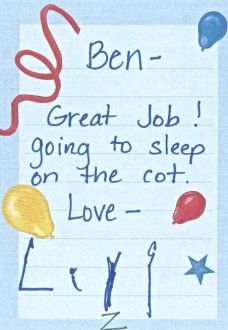 Ben-
Great Job!
going to sleep
on the cot.
Love-